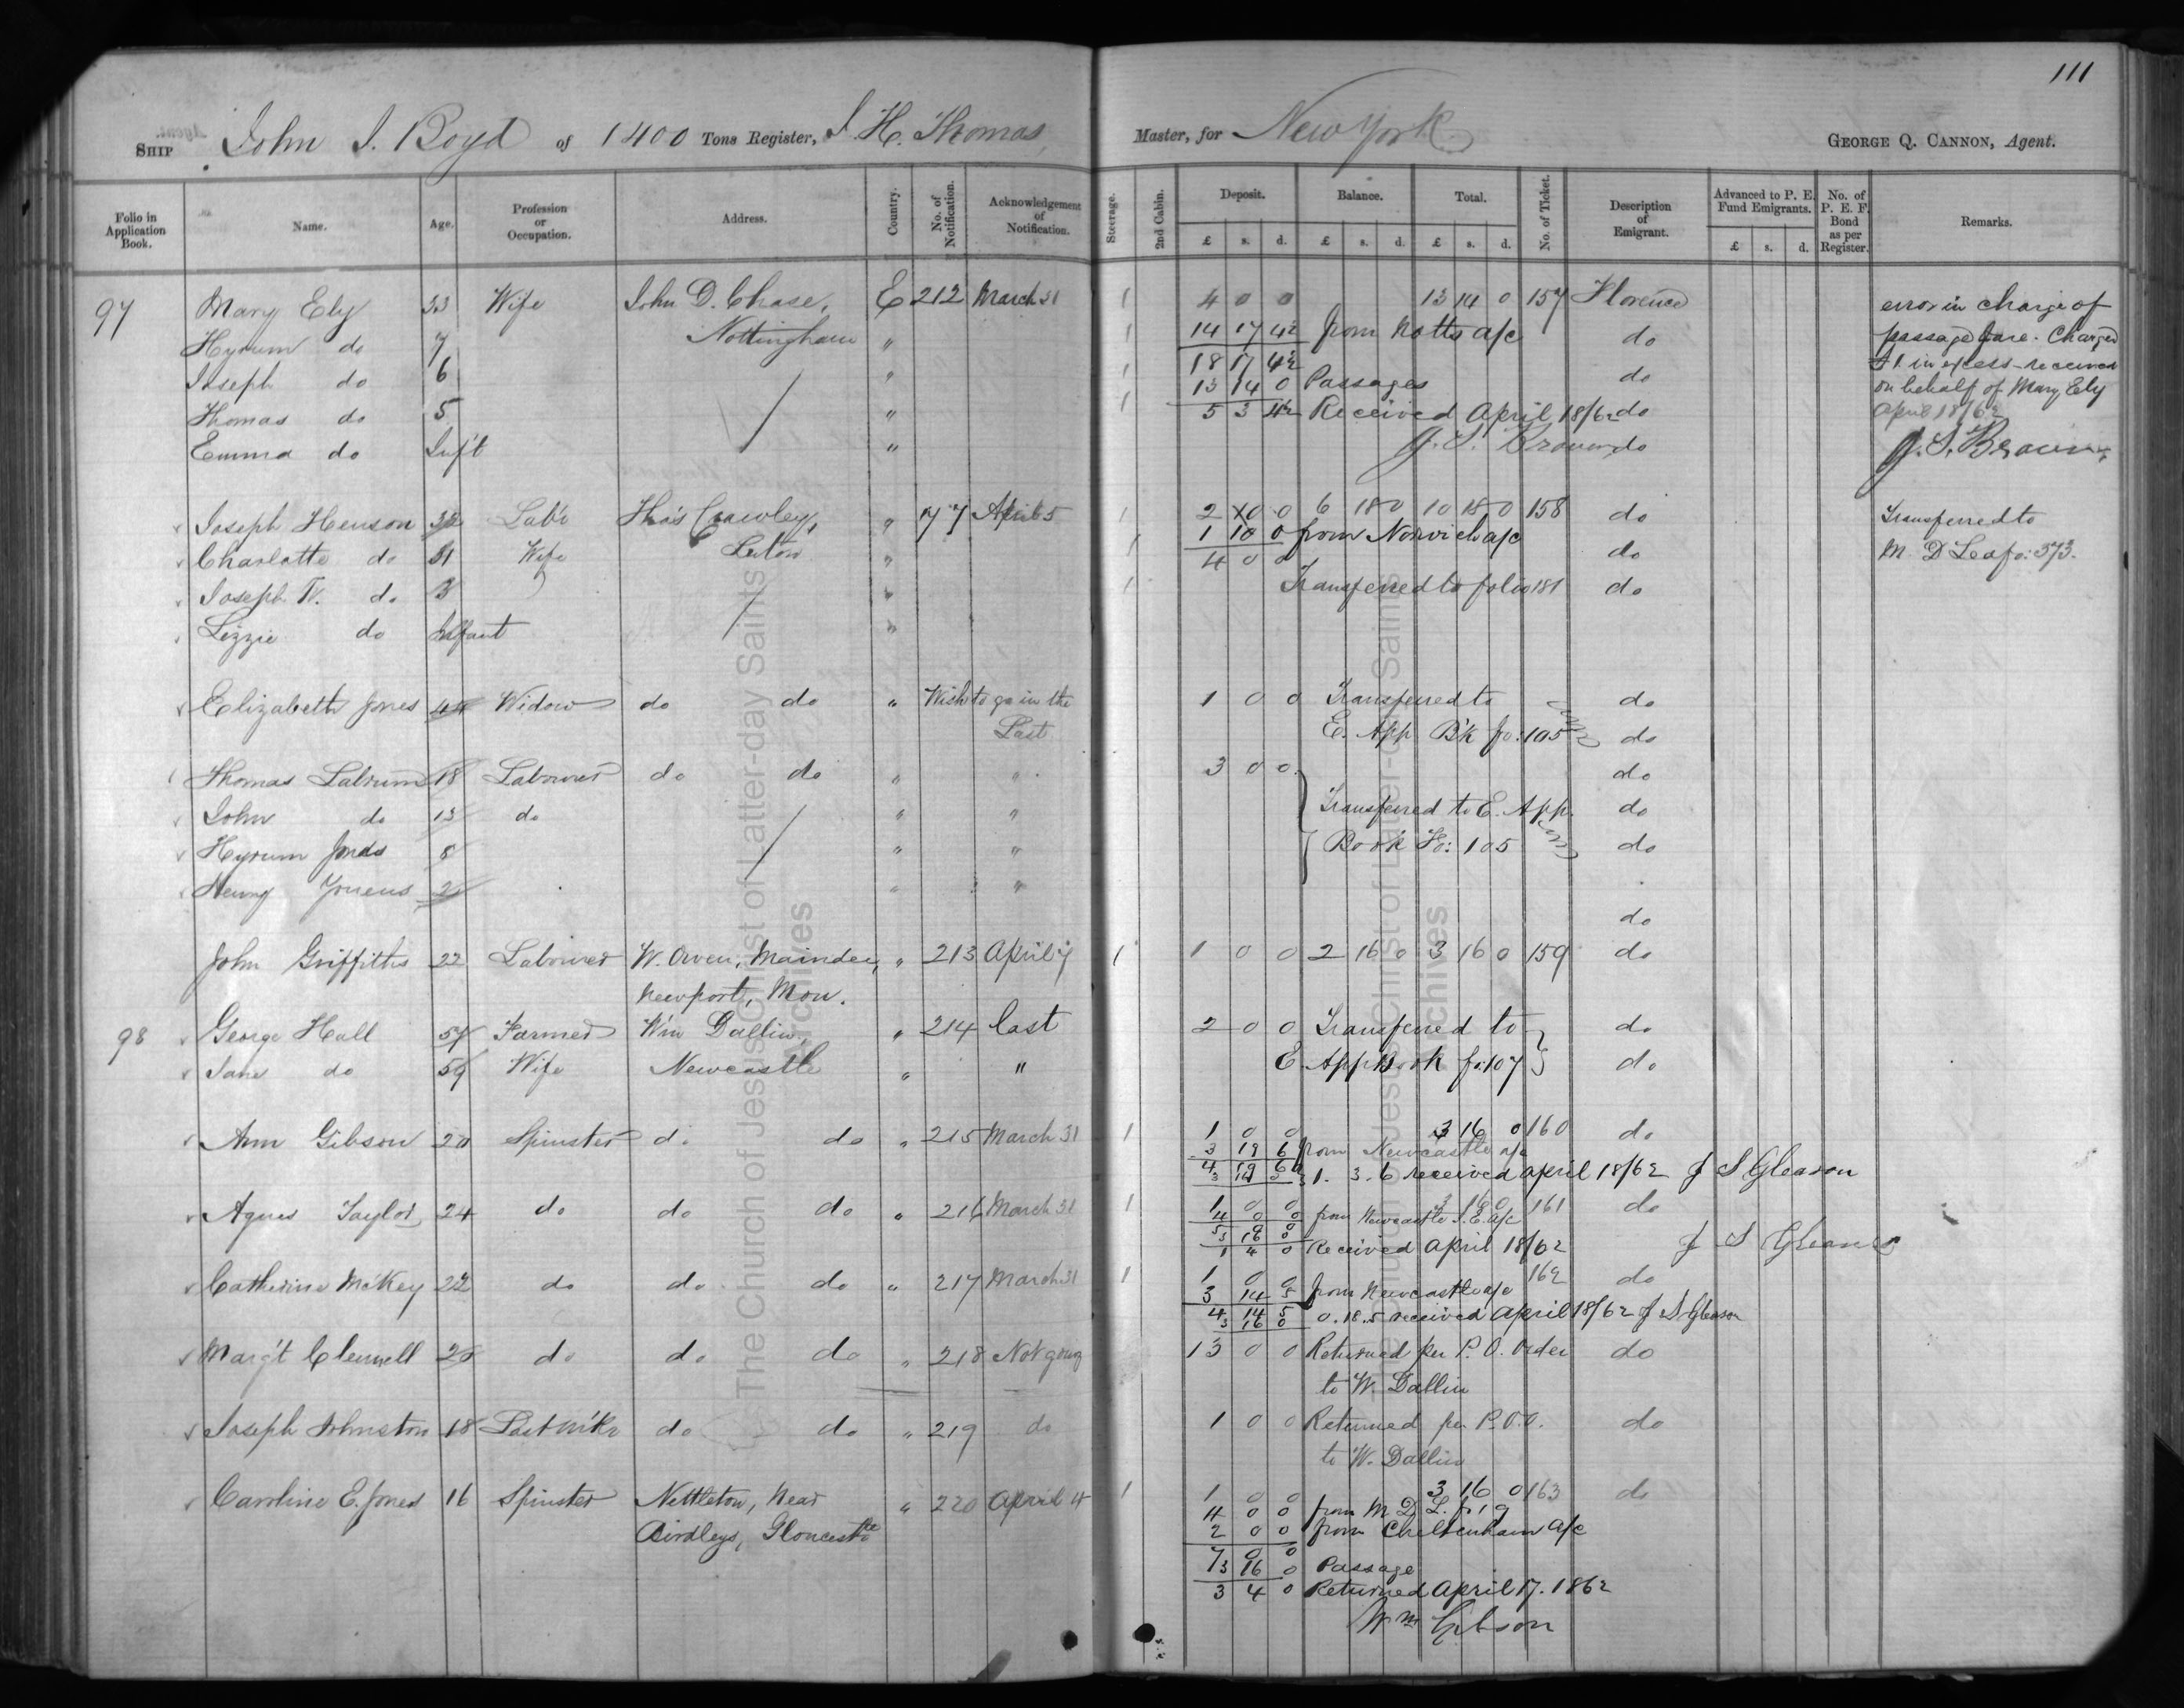 111
SHIP John J. Boyd of 1400 Tons Register, J. H. Thomas, Master, for New York GEORGE Q. CANNON, Agent.
Folio in Application Book. Name. Age. Profession or Occupation. Address. Country. No. of Notification. Acknowledgement of Notification. Steerage. 2nd Cabin. Deposit. Balance. Total. No. of Ticket. Description of Emigrant. Advanced to P. E. Fund Emigrants. No. of P. E. F. Bond as per Register. Remarks.
£ s. d. £ s. d. £ s. d. £ s. d.
97 Mary Ely 33 Wife John D. Chase, E 212 March 31 1 4 0 0 13 14 0 157 Florence error in charge of
Hyrum do 7 Nottingham " 1 14 17 4½ from Notts a/c do passage fare. Charged
18 17 4½ £1 in excess - received
Joseph do 6 " 1 13 14 0 Passages do on behalf of Mary Ely
Thomas do 5 " 1 5 3 4½ Received April 18/62 do April 18/62
Emma do Inf't " J. S. Brown do J. S. Brown
Joseph Henson 32 Lab'r Tho's Crawley, " 77 April 5 1 2 10 0 6 18 0 10 18 0 158 do Transferred to
Charlotte do 31 Wife Luton " 1 1 10 0 from Norwich a/c do M. D Lea fo: 373.
4 0 0
Joseph W. do 3 " 1 Transferred to folio 181 do
Lizzie do Infant "
Elizabeth Jones 44 Widow do do " Wish to go in the 1 0 0 Transferred to do
Last E. App B'k fo: 105 do
Thomas Labrum 18 Labourer do do " " 3 0 0 do
John do 13 do " " Transferred to E. App. do
Hyrum Jones 8 " " Book Fo: 105 do
Henry Youens 2 " "
do
John Griffiths 22 Labourer W. Owen, Maindee, " 213 April 7 1 1 0 0 2 16 0 3 16 0 159 do
Newport, Mon.
98 George Hall 57 Farmer Wm Dallin, " 214 last 2 0 0 Transferred to do
Jane do 59 Wife Newcastle " " E App Book fo: 107 do
Ann Gibson 20 Spinster do do " 215 March 31 1 1 0 0 3 16 0 160 do
3 19 6 from Newcastle a/c
4 19 6 1. 3. 6 received April 18/62 J S Gleason
Agnes Taylor 24 do do do " 216 March 31 1 1 0 0 3 16 0 161 do
4 0 0 from Newcastle I. E. a/c
1 4 0 Received April 18/62 J S Gleason
Catherine McKey 22 do do do " 217 March 31 1 1 0 0 162 do
3 14 5 from Newcastle a/c
4 14 5 0. 18. 5 received April 18/62 J S Gleason
3 16 0
Marg't Clennell 28 do do do " 218 Not going 13 0 0 Returned per P. O. Order do
to W. Dallin
Joseph Johnston 18 Last m'kr do do " 219 do 1 0 0 Returned per P.O.O. do
to W. Dallin
Caroline E. Jones 16 Spinster Nettleton, Near " 220 April 4 1 1 0 0 3 16 0 163 do
4 0 0 from M D L. fo: 19
Birdleys, Gloucest 2 0 0 from Cheltenham a/c
7 0 0
3 16 0 Passage
3 4 0 Returned April 17. 1862
Wm Gibson
The Church of Jesus Christ of Latter-day Saints
Archives
The Church of Jesus Christ of Latter-day Saints
Archives